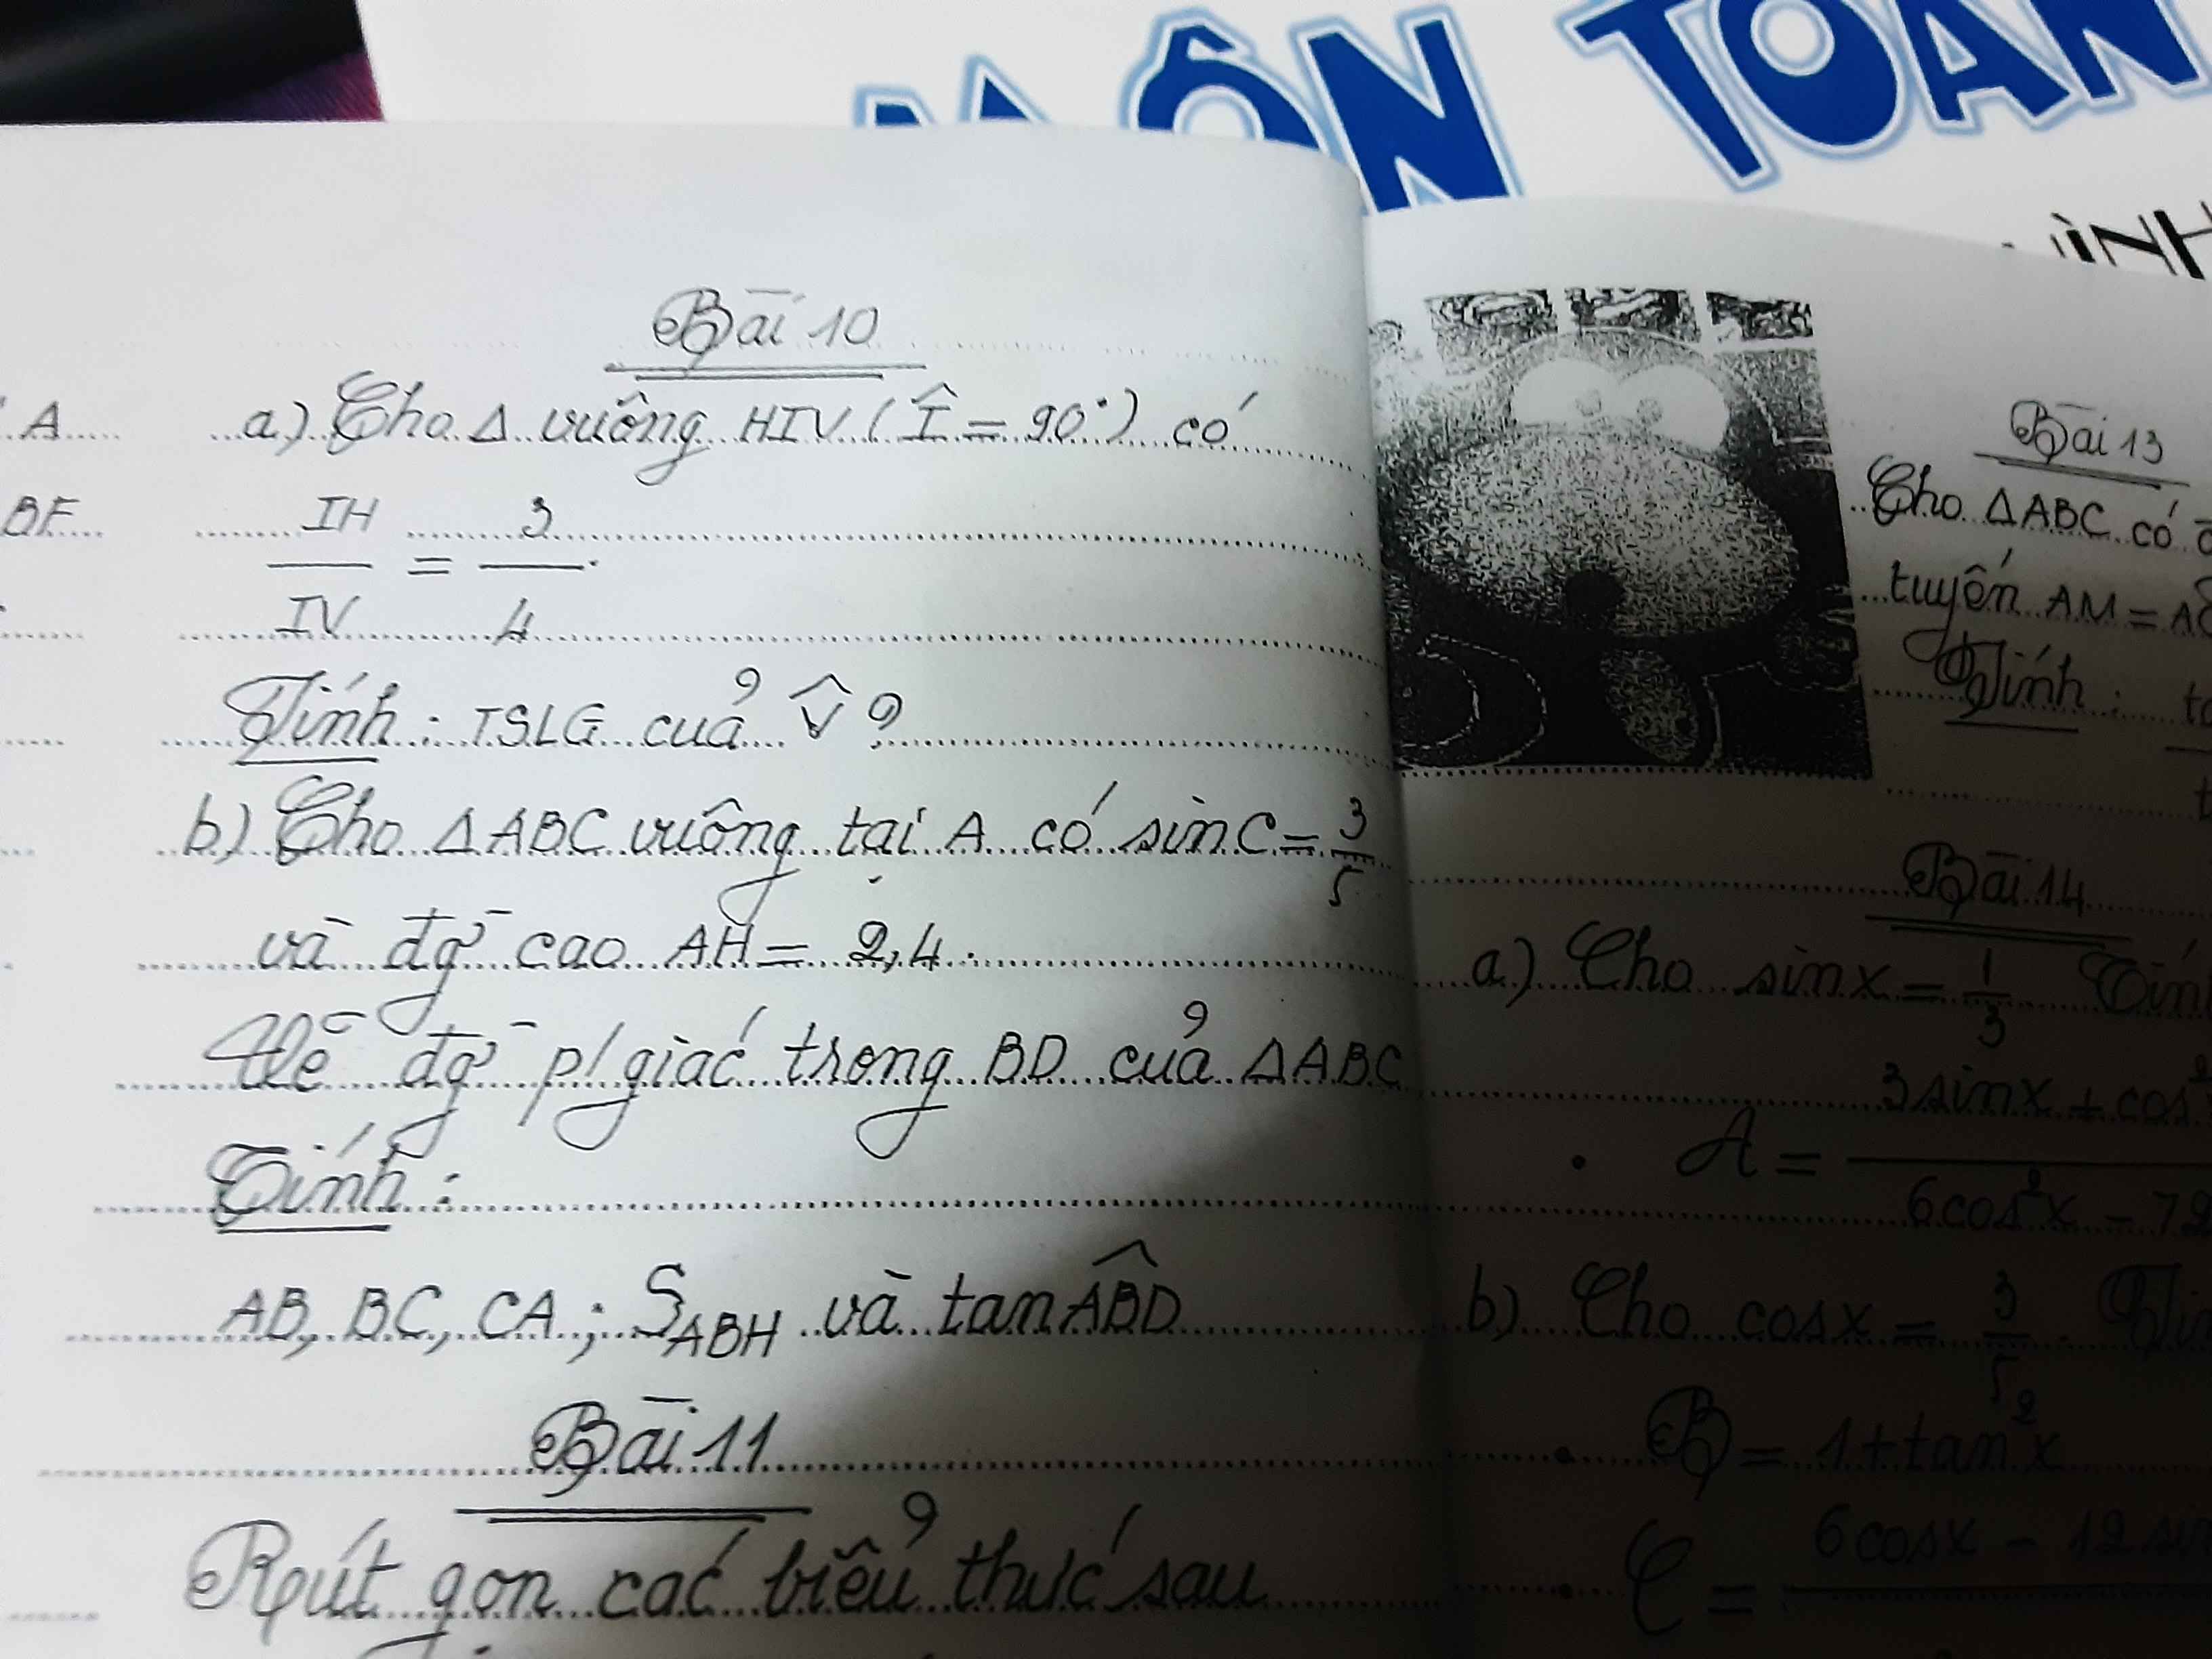 MÔN TOÁN
Bài 10
A
a) Cho Δ vuông HIV (Î = 90°) có
BF
IH = 3
IV 4
Tính: TSLG của V̂ ?
b) Cho ΔABC vuông tại A có sinC = 3/5
và đg̀ cao AH = 2,4.
Vẽ đg̀ p/giác trong BD của ΔABC
Tính:
AB, BC, CA ; S_ABH và tanABD
Bài 11
Rút gọn các biểu thức sau
Bài 13
Cho ΔABC có
tuyến AM =
Tính:
Bài 14
a) Cho sinx = 1/3
A = 3sinx + cos
6cos²x -
b) Cho cosx = 3/5.
B = 1 + tan²x
C = 6cosx - 12